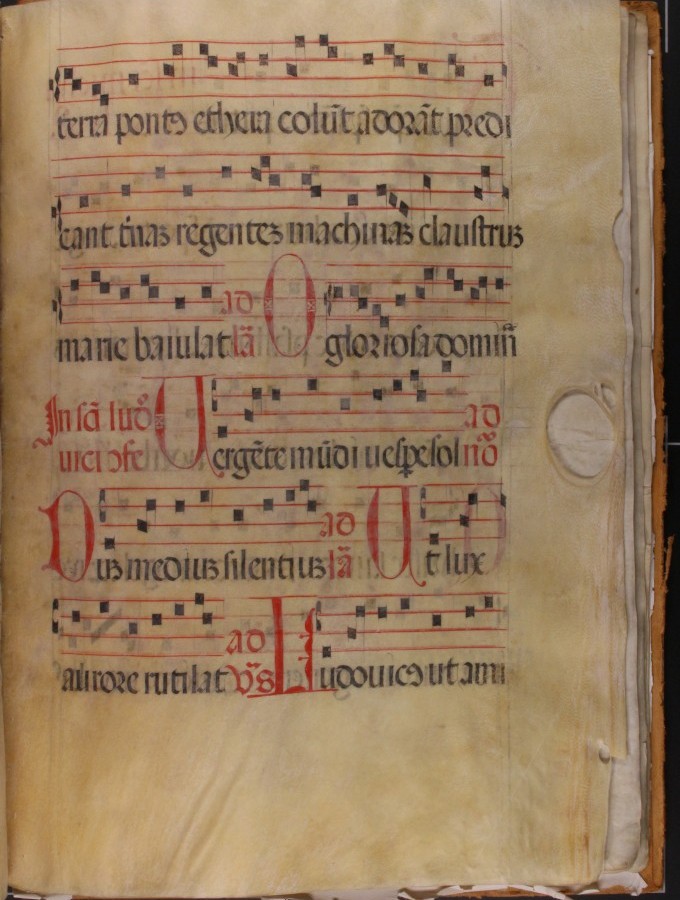 terra pontꝯ ethera colūt adorāt predi
cant. t̄nas regentes machinas claustrus
marie baiulat ad lā O gloriosa dominā
In sā. ludo uici ɔfe Uergēte mūdi uesꝑe sol ad nō
Dius medius silentius ad lā Ut lux
aurore rutilat ad v̄s Ludouicꝯ ut ami